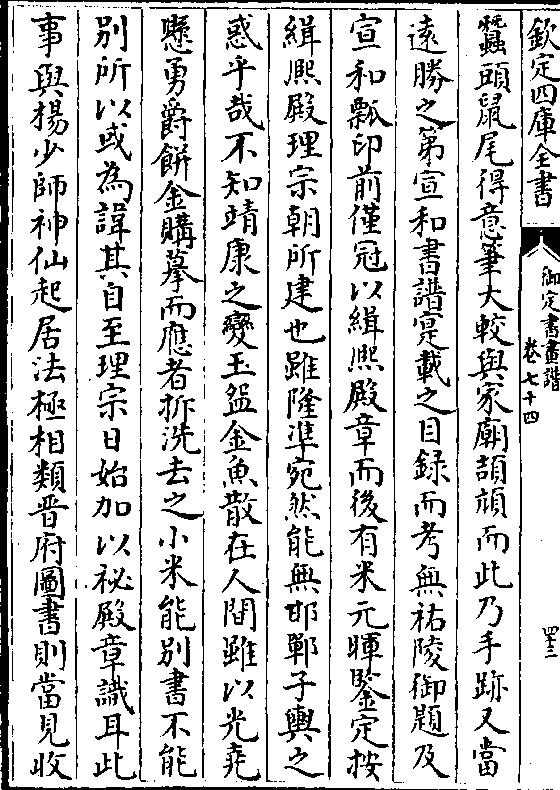 欽定四庫全書
御定書畫譜
卷七十四
四三
蠶頭鼠尾得意筆大較與家廟頡頏而此乃手跡又當
遠勝之第宣和書譜寔載之目録而考無祐陵御題及
宣和瓢印前僅冠以緝熙殿章而後有米元暉鑒定按
緝熙殿理宗朝所建也雖隆凖宛然能無邯鄲子輿之
惑乎哉不知靖康之變玉盌金魚散在人間雖以光堯
懸勇爵餅金購摹而應者拆洗去之小米能别書不能
别所以或為諱其自至理宗日始加以祕殿章識耳此
事與楊少師神仙起居法極相類晋府圖書則當見收